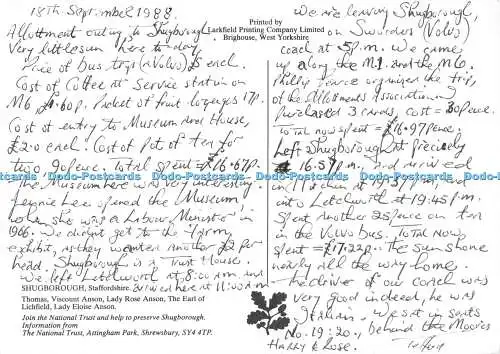 18th September 1988.
Allotment outing, to Shugborough
Very little sun here to-day
Price of bus trip (Volvo) £5 each.
Cost of Coffee at Service station on
M6 £1.60p. Packet of fruit 17p.
Cost of entry to Museum and House,
£2.0 each. Cost of pot of tea for
two 90pence. Total spent = £16.67p.
The Museum here was very interesting
Jennie Lee opened the Museum
when she was a Labour Minister in
1966. We didn't get to the farm
exhibit, as they wanted another £2 per
head. Shugborough is a Trust House.
We left Letchworth at 8:00 a.m and
arrived here at 11:00 a.m
SHUGBOROUGH, Staffordshire.
Thomas, Viscount Anson, Lady Rose Anson, The Earl of
Lichfield, Lady Eloise Anson.
Join the National Trust and help to preserve Shugborough.
Information from
The National Trust, Attingham Park, Shrewsbury, SY4 4TP.
Printed by
Larkfield Printing Company Limited
Brighouse, West Yorkshire
We are leaving Shugborough,
on (Volvo)
coach at 5p.m. We came
up along the M1 and the M6.
organized the trip,
of the Allotments Association
Purchased 3 cards cost = 30pence.
Total now spent = £16.97pence.
Left Shugborough at precisely
16:57p.m. and arrived
in Hitchin at 19:31p.m. and
into Letchworth at 19:45p.m.
Spent another 25pence on tea
in the Volvo Bus. Total now
spent = £17.22p. The sun shone
nearly all the way home.
The driver of our coach was
very good indeed, he was
Italian. We sat in seats
No. 19 : 20., behind the Moores
Harry & Rose.
Dodo-Postcards Dodo-Postcards Dodo-Postcards Dodo-Postcards